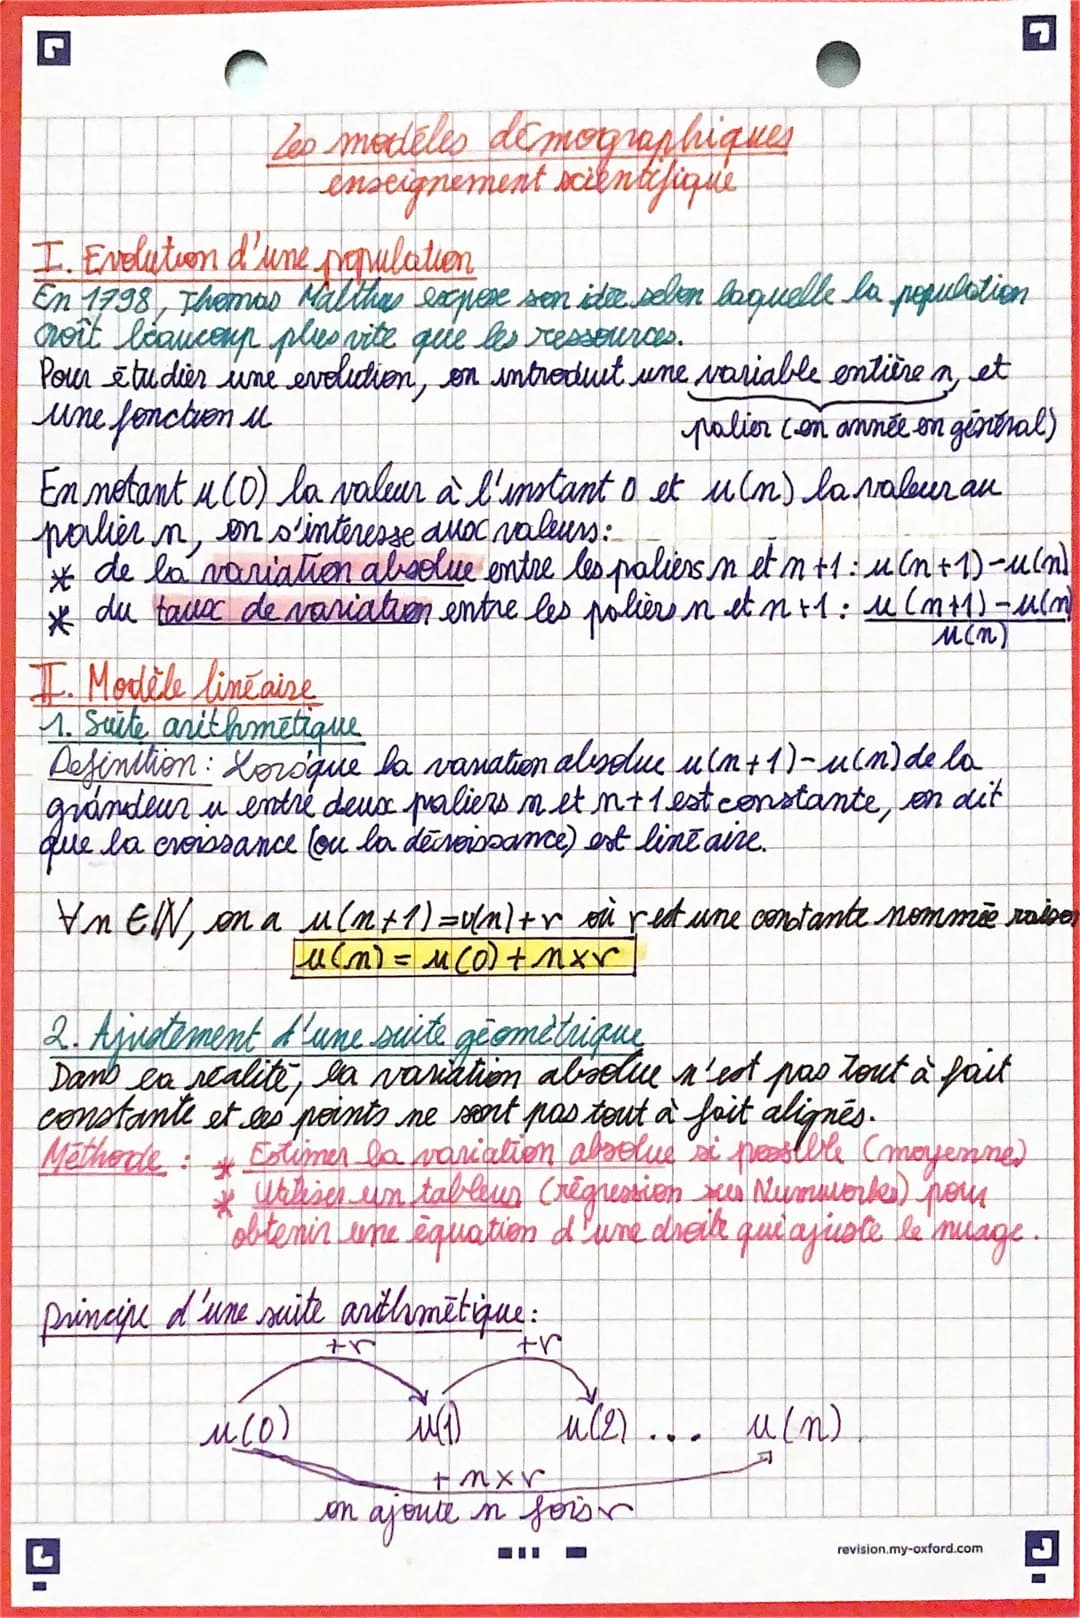 Les modèles démographiques
enseignement scientifique
I. Evolution d'une population
En 1798, Thomas Malthus expose son idée selon laquelle la population
croît beaucoup plus vite que les ressources.
Pour étudier une evolution, on introduit une variable entière n, et
une fonction u
palier (en année en général)
En notant u(0) la valeur à l'instant 0 et u(n) la valeur au
palier n, on s'intéresse aux valeurs:
* de la variation absolue entre les paliers n et n+1 : u(n+1)-u(n)
* du taux de variation entre les paliers n et n+1 : u(n+1)-u(n)
u(n)
II. Modèle linéaire
1. Suite arithmétique
Definition : Lorsque la variation absolue u(n+1)-u(n) de la
grandeur u entre deux paliers n et n+1 est constante, on dit
que la croissance (ou la décroissance) est linéaire.
∀n ∈ ℕ, on a u(n+1)=u(n)+r où r est une constante nommée raison
u(n) = u(0) + n×r
2. Ajustement d'une suite géométrique
Dans la réalité, la variation absolue n'est pas tout à fait
constante et les points ne sont pas tout à fait alignés.
Méthode : * Estimer la variation absolue si possible (moyenne)
* Utiliser un tableur (régression sur Numworks) pour
obtenir une équation d'une droite qui ajuste le nuage.
principe d'une suite arithmétique :
+r +r
u(0) u(1) u(2) ... u(n)
+ n×r
on ajoute n fois r
revision.my-oxford.com